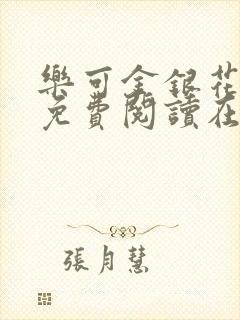 樂可金銀花
免費閱讀在
張月慧